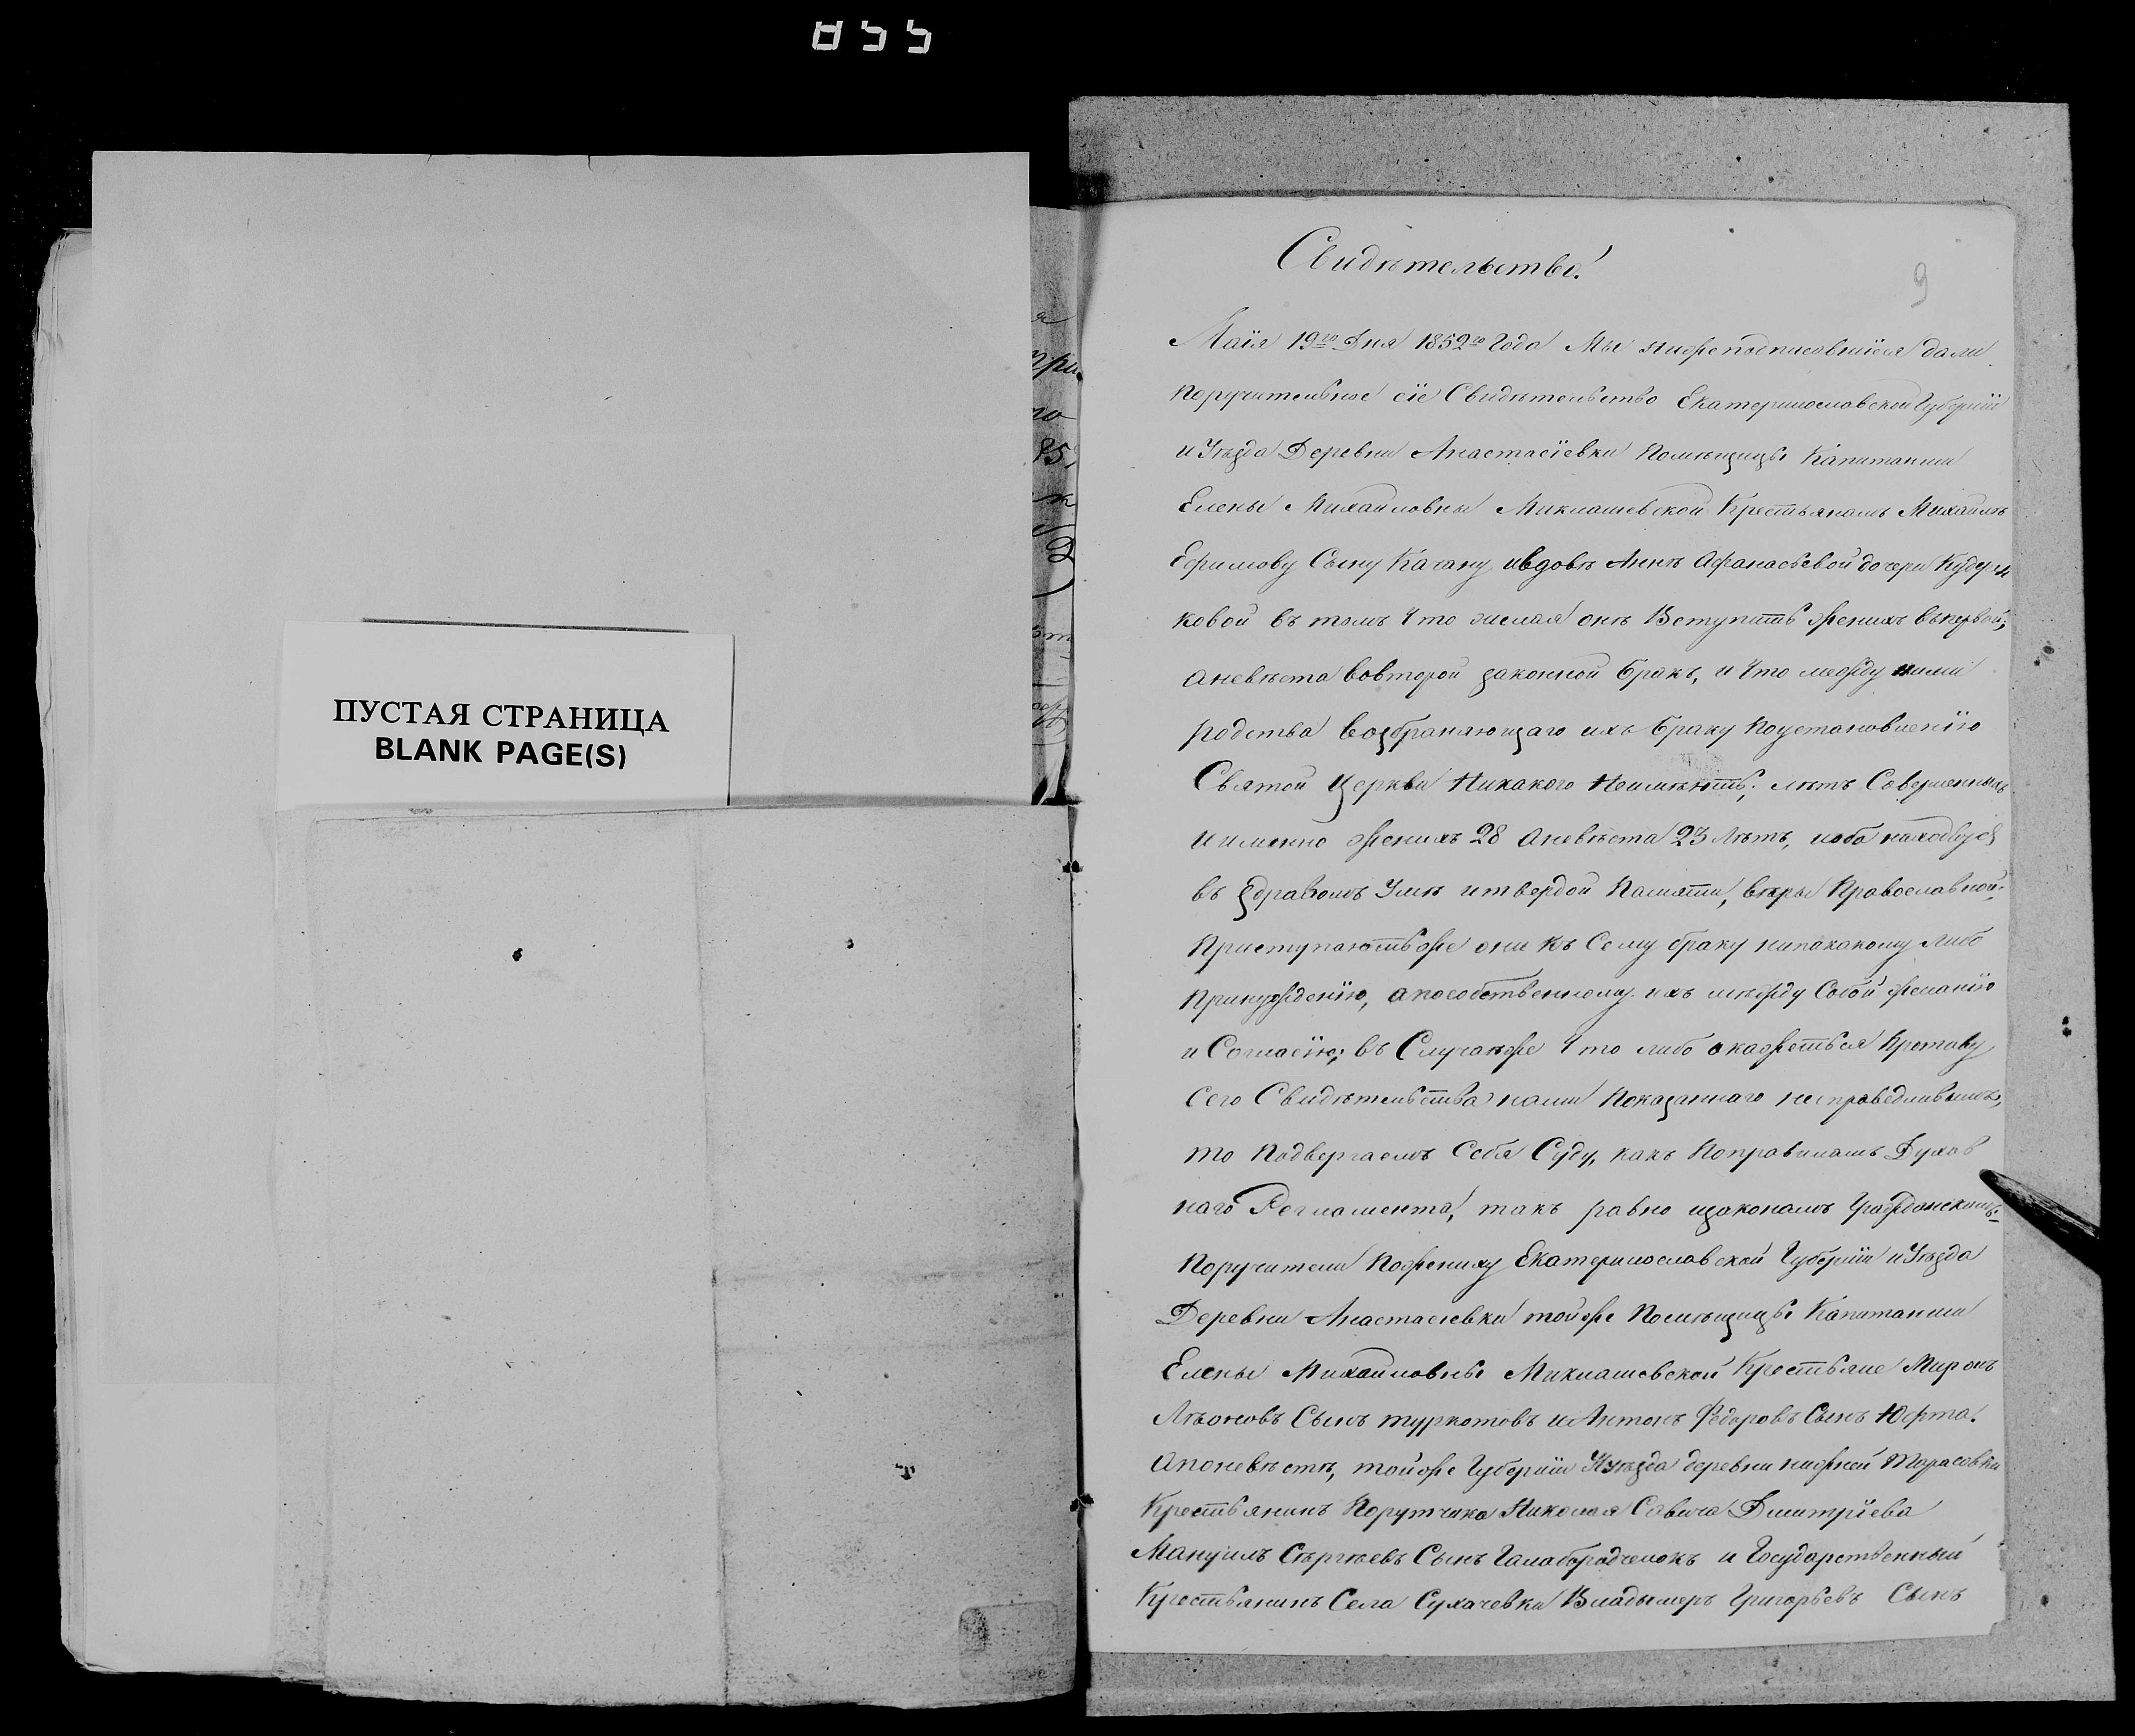 855
ПУСТАЯ СТРАНИЦА
BLANK PAGE(S)
Свидѣтельство!
9
Маія 19го Дня 1852го Года Мы нижеподписавшіеся дали
поручительное сіе Свидѣтельство Екатеринославской Губерніи
и Уѣзда Деревни Анастасіевки Помѣщицы Капитанши
Елены Михайловны Миклашевской Крестьянамъ Михаилѣ
Ефимову Сыну Качану ивдовѣ Аннѣ Афанасьевой дочери
ковой въ томъ Что желая онѣ Вступить Женихъ въпервой,
аневѣста вовторой законной бракъ, и Что между ними
родства возбраняющаго ихъ браку поустановленію
Святой Церкви Никакого Неимѣютъ; лѣтъ Совершенныхъ
и имянно женихъ 28 аневѣста 23 лѣтъ, иоба находятся
въ здравомъ Умѣ итвердой Памяти, вѣры Православной;
Приступаютьже они къ Сему браку нипокакому либо
Принужденію, апособственному ихъ между Собой желанію
и Согласію; въ Случаѣже Что либо окажеться противу
сего Свидѣтельства нами Показаннаго несправедливымъ,
то Подвергаемъ Себя Суду, какъ Поправиламъ Духов
наго Регламента, такъ равно изаконамъ Гражданскимъ:
Поручители Поженику Екатеринославской Губерніи иУѣзда
Деревни Анастасіевки тойже Помѣщицы Капитанши
Елены Михайловны Миклашевской Крестьяне Миронъ
Лѣоновъ Сынъ туркотовъ иАнтонъ Федоровъ Сынъ Юфта!
апоневѣстѣ, тойже Губерніи Иуѣзда деревни нижней Тарасовки
Крестьянинъ Порутчика Николая Савича Дмитріева
Мануилъ Сѣргѣевъ Сынъ Галабородченокъ и Государственный
Крестьянинъ Села Сухачевки Владымеръ Григорьевъ Сынъ